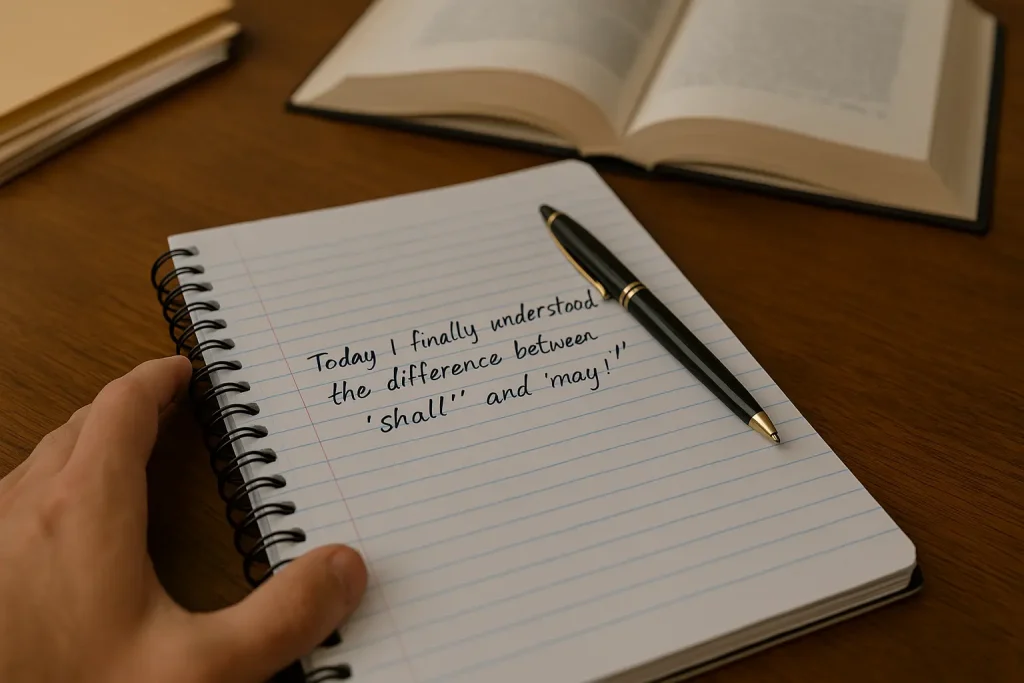 Today I finally understood
the difference between
'shall'' and 'may!''